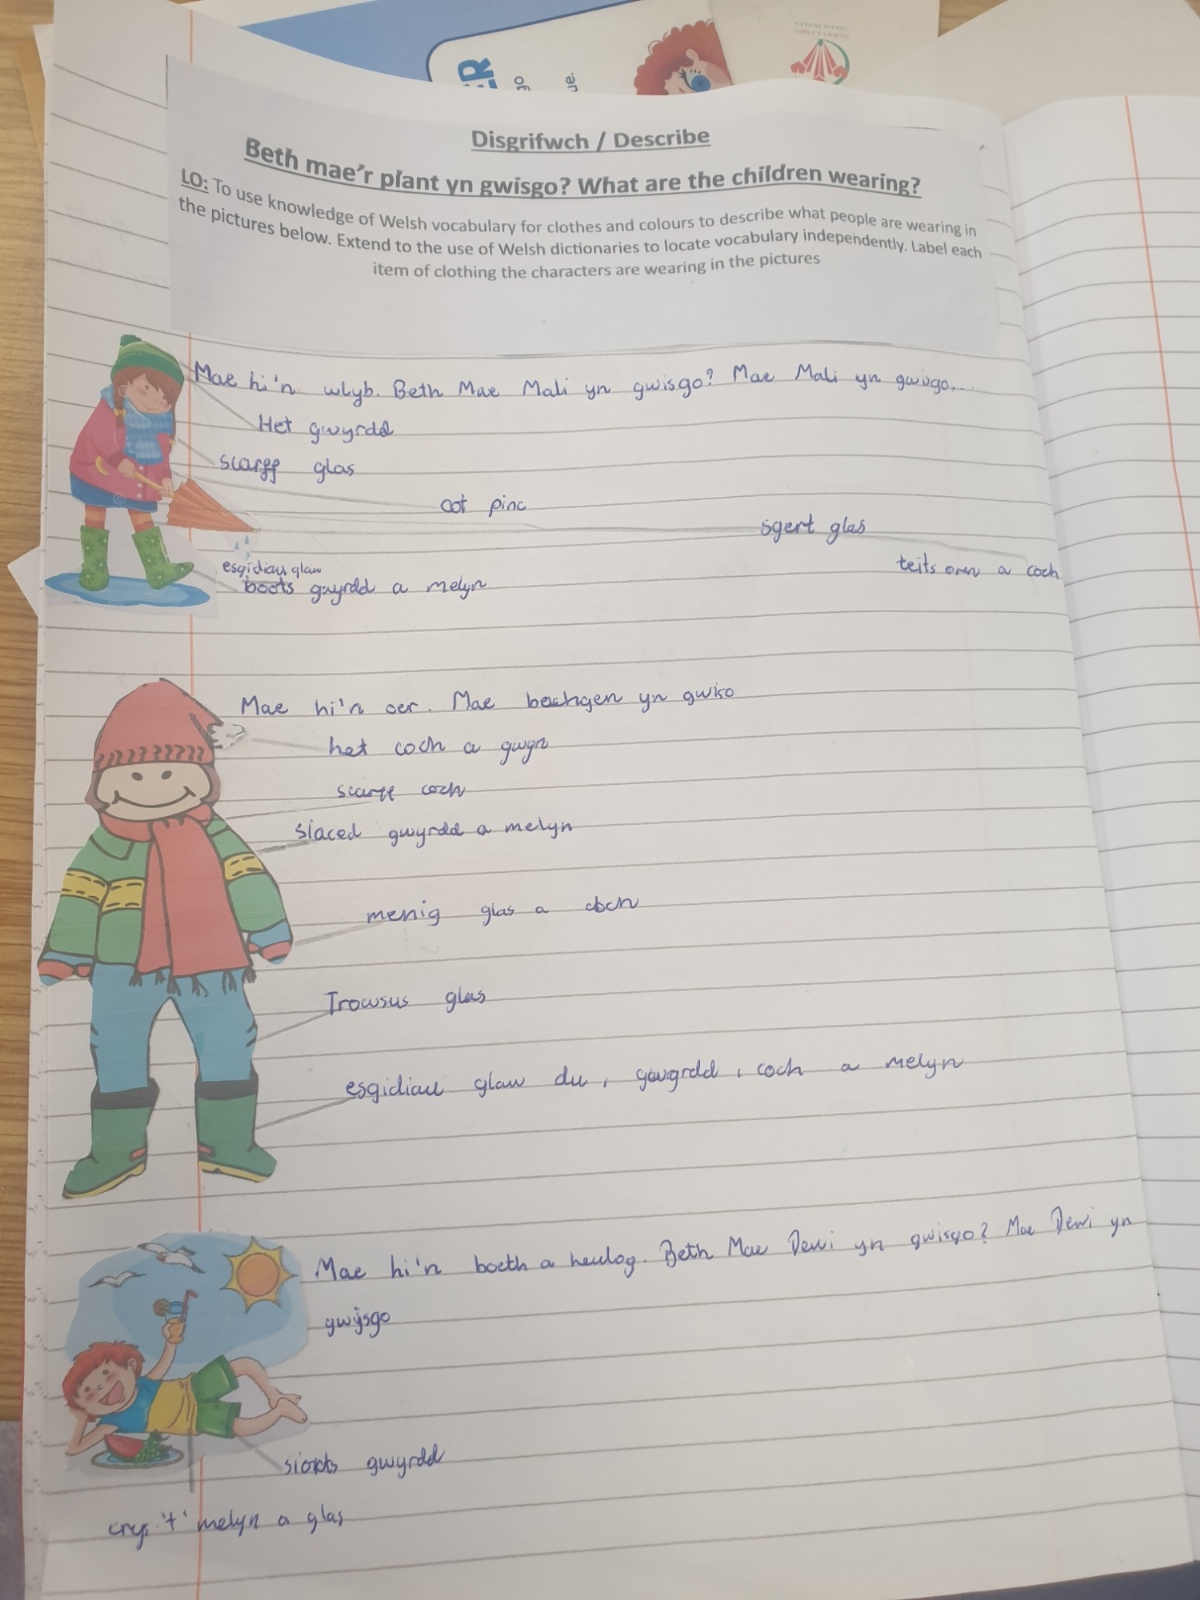 Disgrifwch / Describe
Beth mae'r plant yn gwisgo? What are the children wearing?
LO: To use knowledge of Welsh vocabulary for clothes and colours to describe what people are wearing in
the pictures below. Extend to the use of Welsh dictionaries to locate vocabulary independently. Label each
item of clothing the characters are wearing in the pictures
Mae hi'n wlyb. Beth Mae Mali yn gwisgo? Mae Mali yn gwisgo....
Het gwyrdd
scarff glas
cot pinc
sgert glas
teits oren a coch
esgidiau glaw
boots gwyrdd a melyn
Mae hi'n oer. Mae bachgen yn gwiso
het coch a gwyn
scarff coch
siaced gwyrdd a melyn
menig glas a coch
Trowsus glas
esgidiau glaw du, gwyrdd, coch a melyn
Mae hi'n boeth a heulog. Beth Mae Dewi yn gwisgo? Mae Dewi yn
gwisgo
siorts gwyrdd
crys 't' melyn a glas